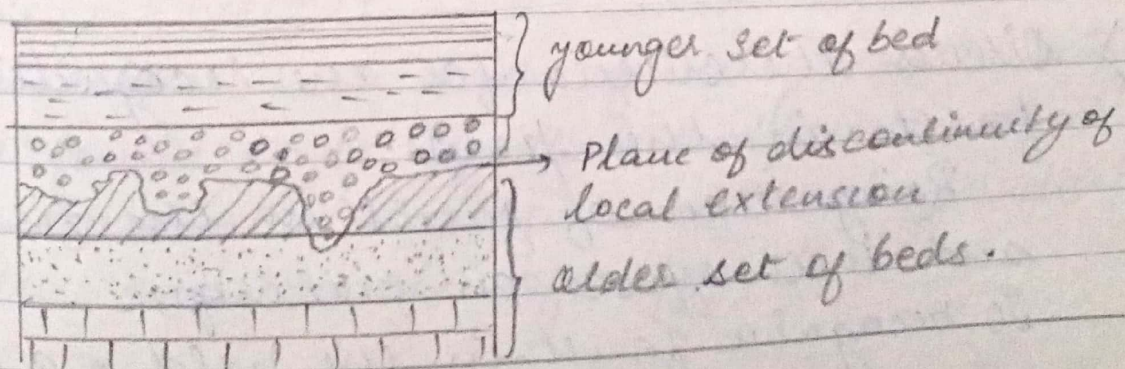 younger set of bed
Plane of discontinuity of
local extension
older set of beds.